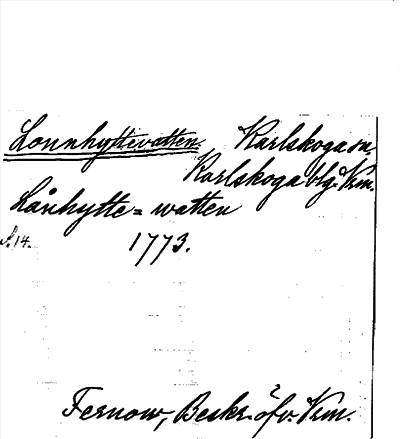 Lonnhyttevatten. Karlskoga sn,
Karlskoga blg. Vrm.
Lånhytte=watten
S. 14. 1773.
Fernow, Beskr. öfv. Vrm.